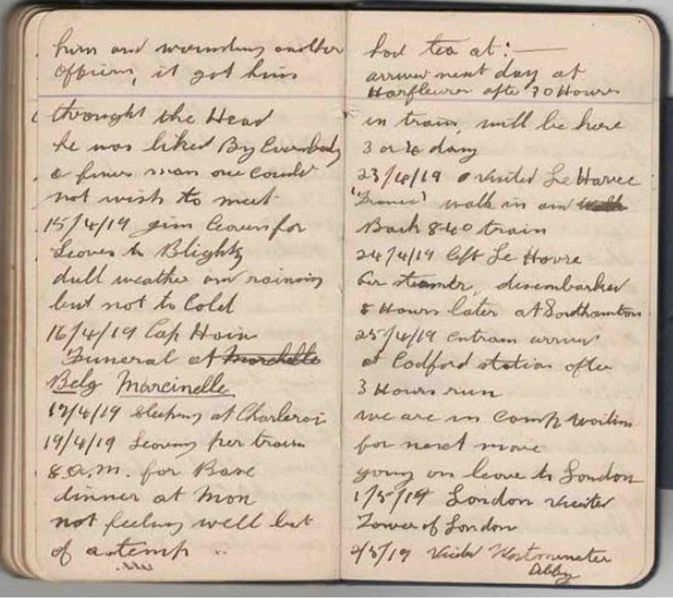 him and wounding another
Officer, it got him
through the Head
he was liked By Everybody
a finer man one could
not wish to meet
15/4/19 for
Leave to Blighty
dull weather and raining
but not to Cold
16/4/19 Cap
Funeral at
Belg Marcinelle
17/4/19 Sleeping at Charleroi
19/4/19 Leaving per train
8.a.m. for Base
dinner at Mon
not feeling well bit
of a temp ..
had tea at:—
arrived next day at
Harfleur after 30 Hours
in train, will be here
3 or 4 days
23/4/19 visited Le Havre
'France' walk in and
Back 8.40 train
24/4/19 left Le Havre
per steamer, disembarked
8 Hours later at Southampton
25/4/19 entrain arrived
at Codford station after
3 Hours run
we are in camp waiting
for next move
going on leave to London
1/5/19 London visited
Tower of London
2/5/19 Visited Westminster
Abby